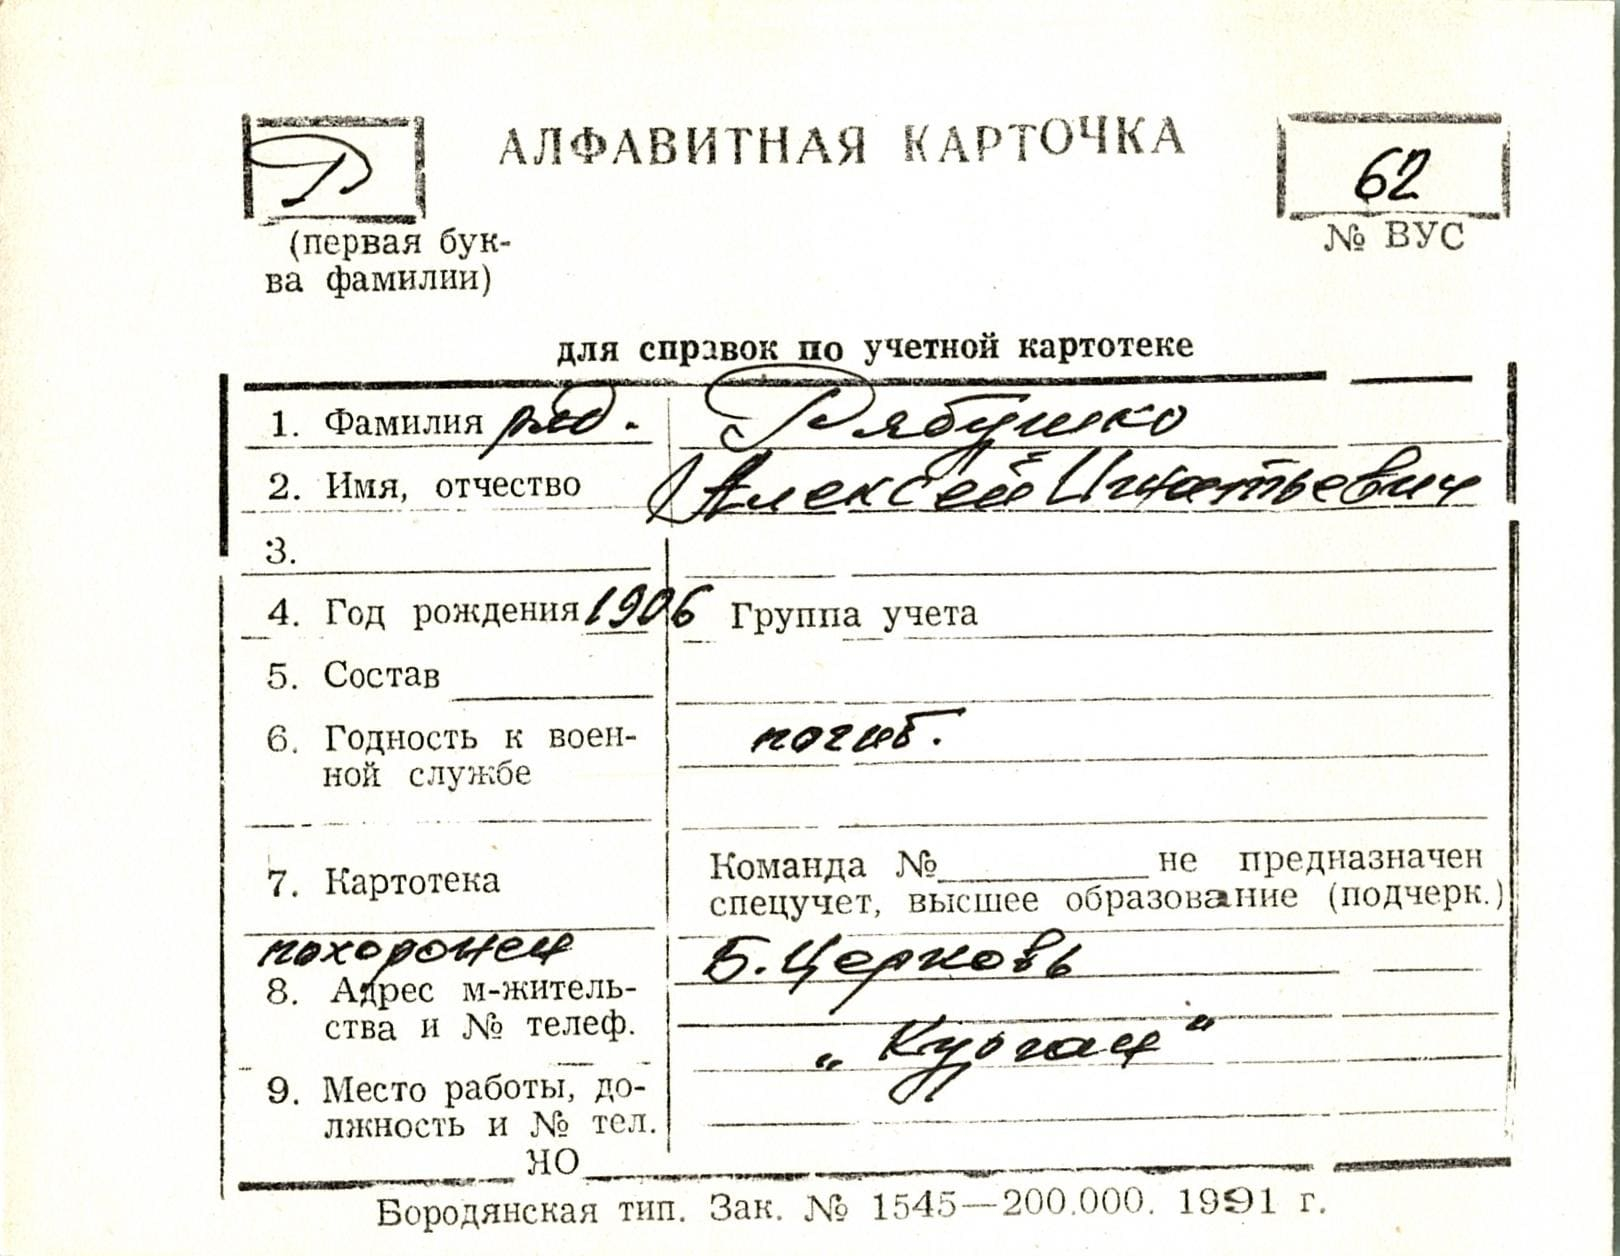 Р
АЛФАВИТНАЯ КАРТОЧКА
62
(первая бук-
ва фамилии)
№ ВУС
для справок по учетной картотеке
1. Фамилия ряд. Рябушко
2. Имя, отчество Алексей Игнатьевич
3.
4. Год рождения 1906 Группа учета
5. Состав
6. Годность к воен- погиб.
ной службе
7. Картотека
Команда № не предназначен
спецучет, высшее образование (подчерк.)
похоронен Б. Церковь
8. Адрес м-житель-
ства и № телеф.
„Курган"
9. Место работы, до-
лжность и № тел.
ЯО
Бородянская тип. Зак. № 1545—200.000. 1991 г.